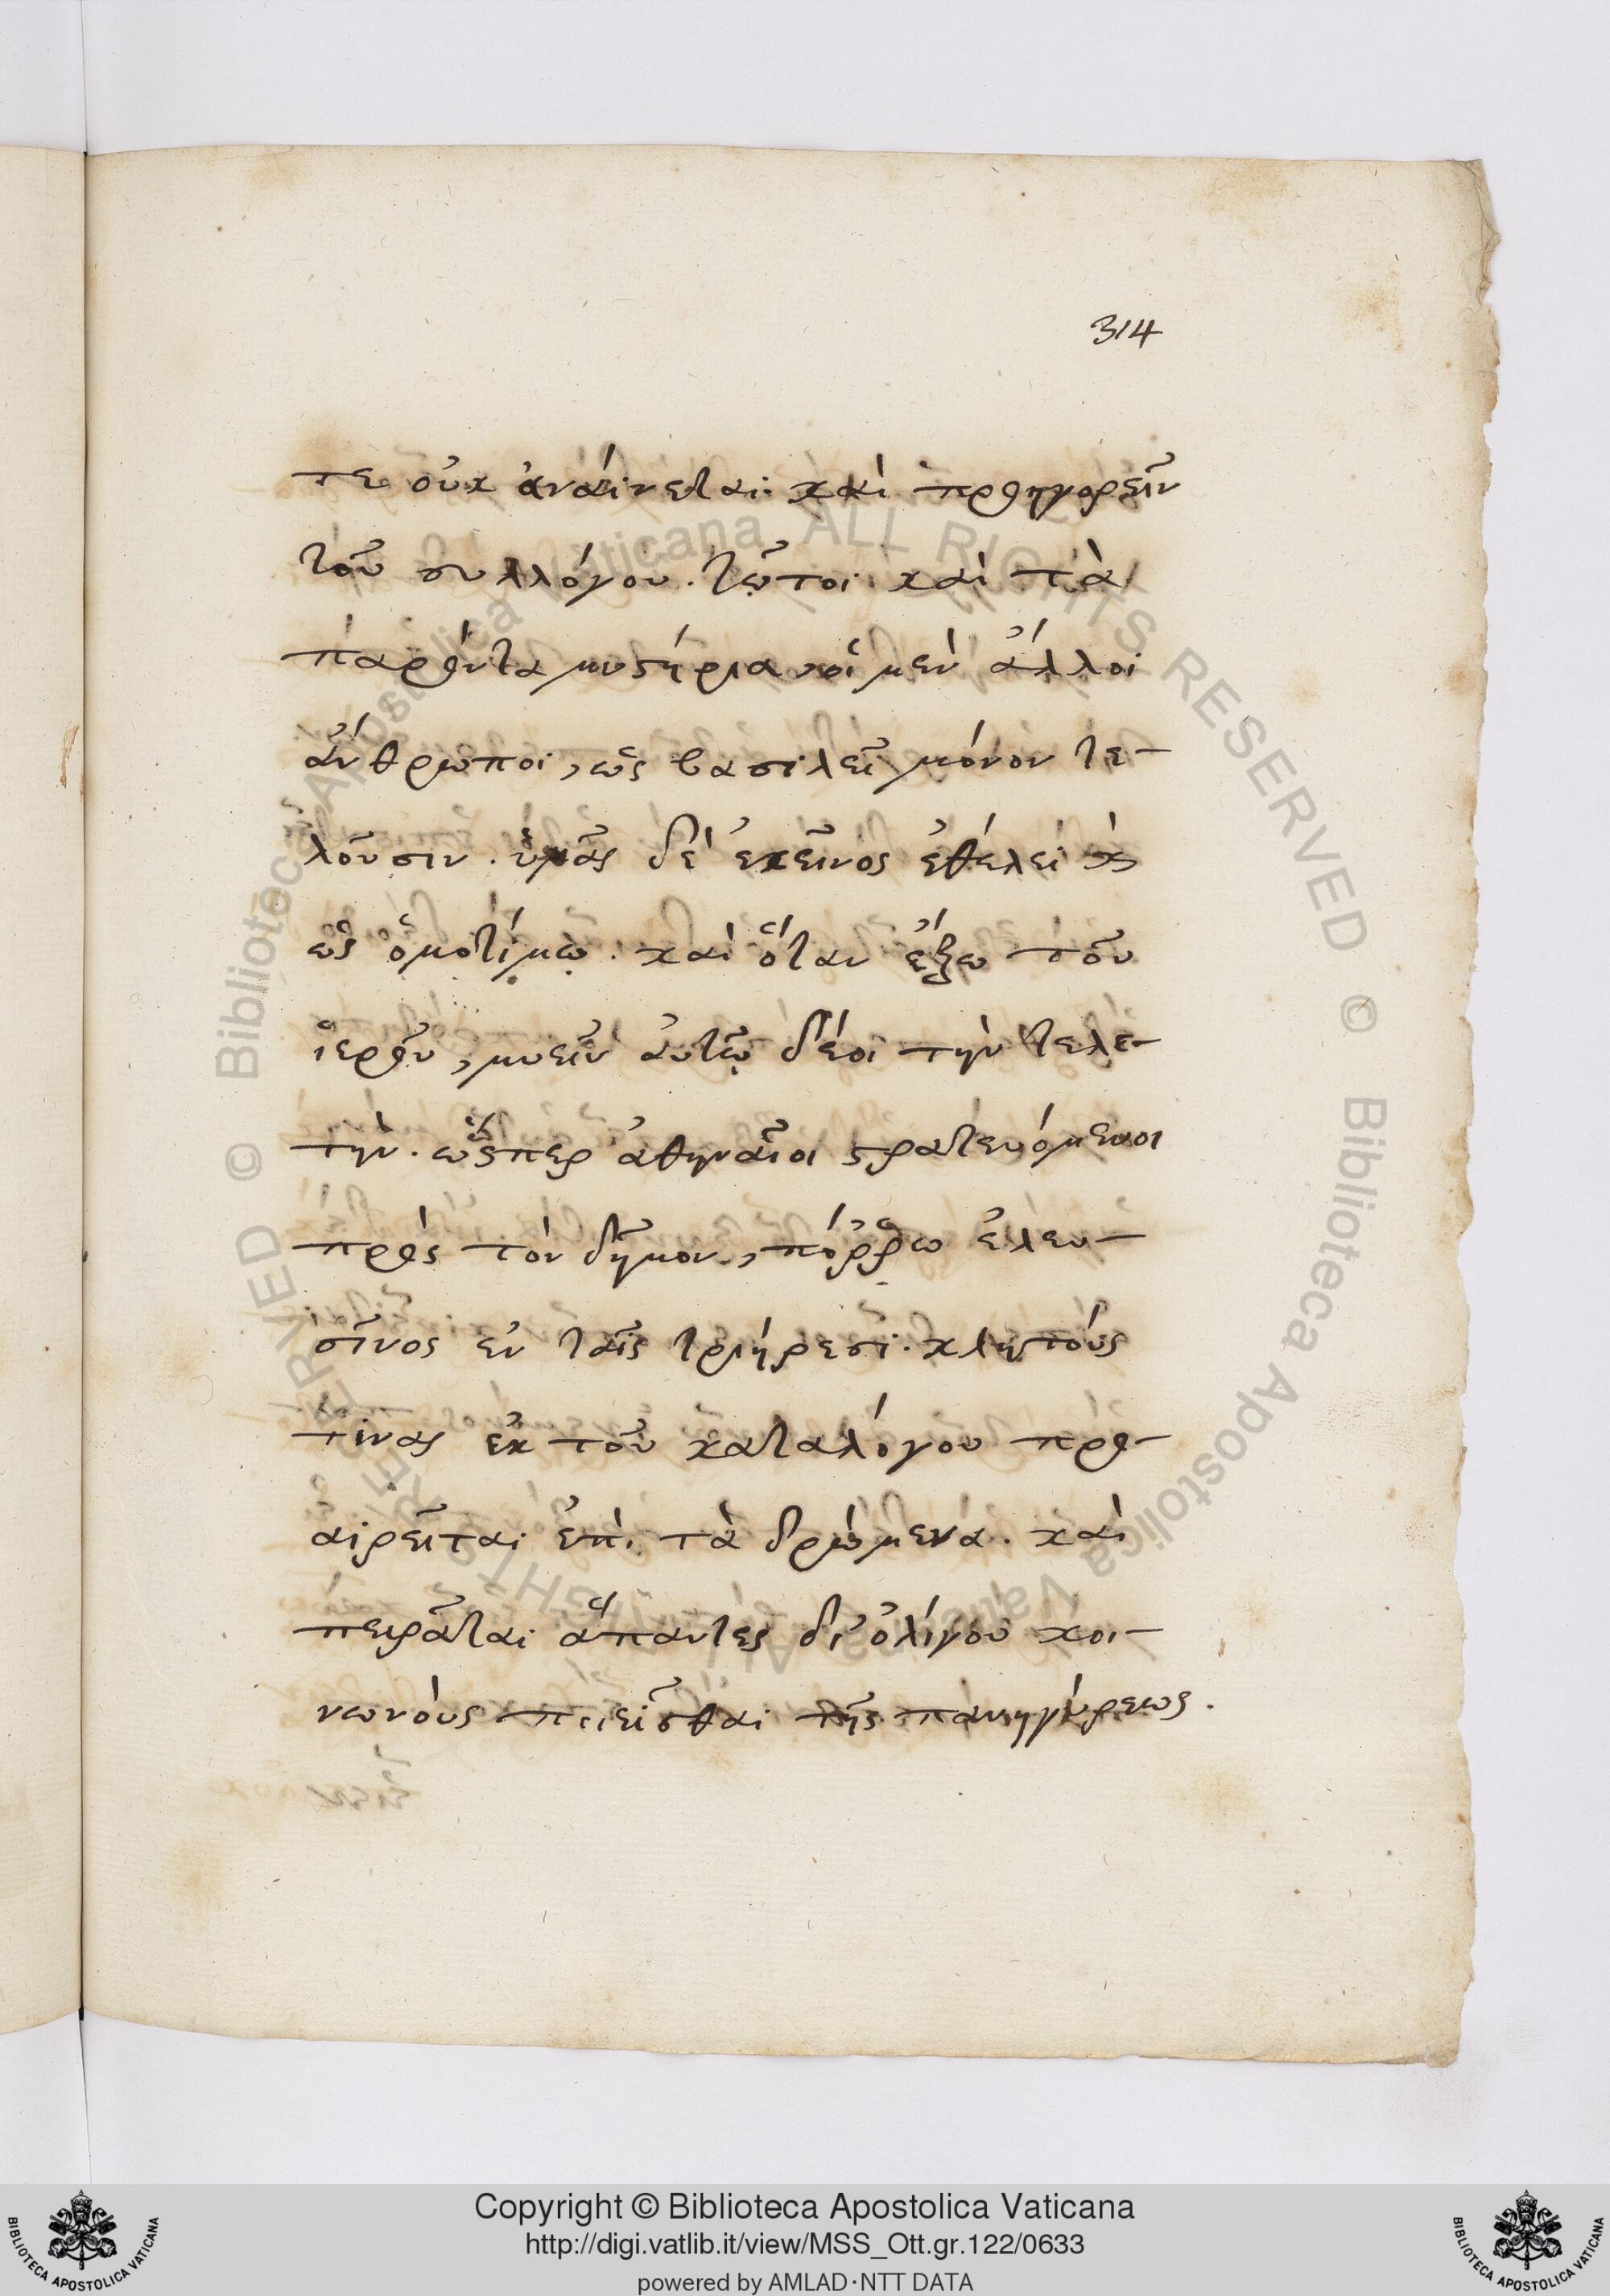 314
τε οὐκ ἀναίνεται· καὶ προηγορεῖν
τοῦ συλλόγου. τῷ τοι καὶ τὰ
παρόντα μυστήρια, οἱ μὲν ἄλλοι
ἄνθρωποι, ὡς βασιλεῖ μόνον τε-
λοῦσιν. ὑμᾶς δὲ ἐκεῖνος ἐθέλει καὶ
ὡς ὁμοτίμῳ. καὶ ὅταν ἔξω τοῦ
ἱεροῦ, μυεῖν αὐτῷ δέοι τὴν τελε-
τήν. ὥσπερ ἀθηναῖοι στρατευόμενοι
πρὸς τὸν δῆμον, πόῤῥω ἐλευ-
σῖνος ἐν ταῖς τριήρεσι. κλητούς
τινας ἐκ τοῦ καταλόγου προ-
αιρεῖται ἐπὶ τὰ δρώμενα. καὶ
πειρᾶται ἅπαντες δι' ὀλίγου κοι-
νωνοὺς ποιεῖσθαι τῆς πανηγύρεως.
Copyright © Biblioteca Apostolica Vaticana
http://digi.vatlib.it/view/MSS_Ott.gr.122/0633
powered by AMLAD·NTT DATA
BIBLIOTECA APOSTOLICA VATICANA
BIBLIOTECA APOSTOLICA VATICANA
© Biblioteca Apostolica Vaticana ALL RIGHTS RESERVED © Biblioteca Apostolica Vaticana ALL RIGHTS RESERVED